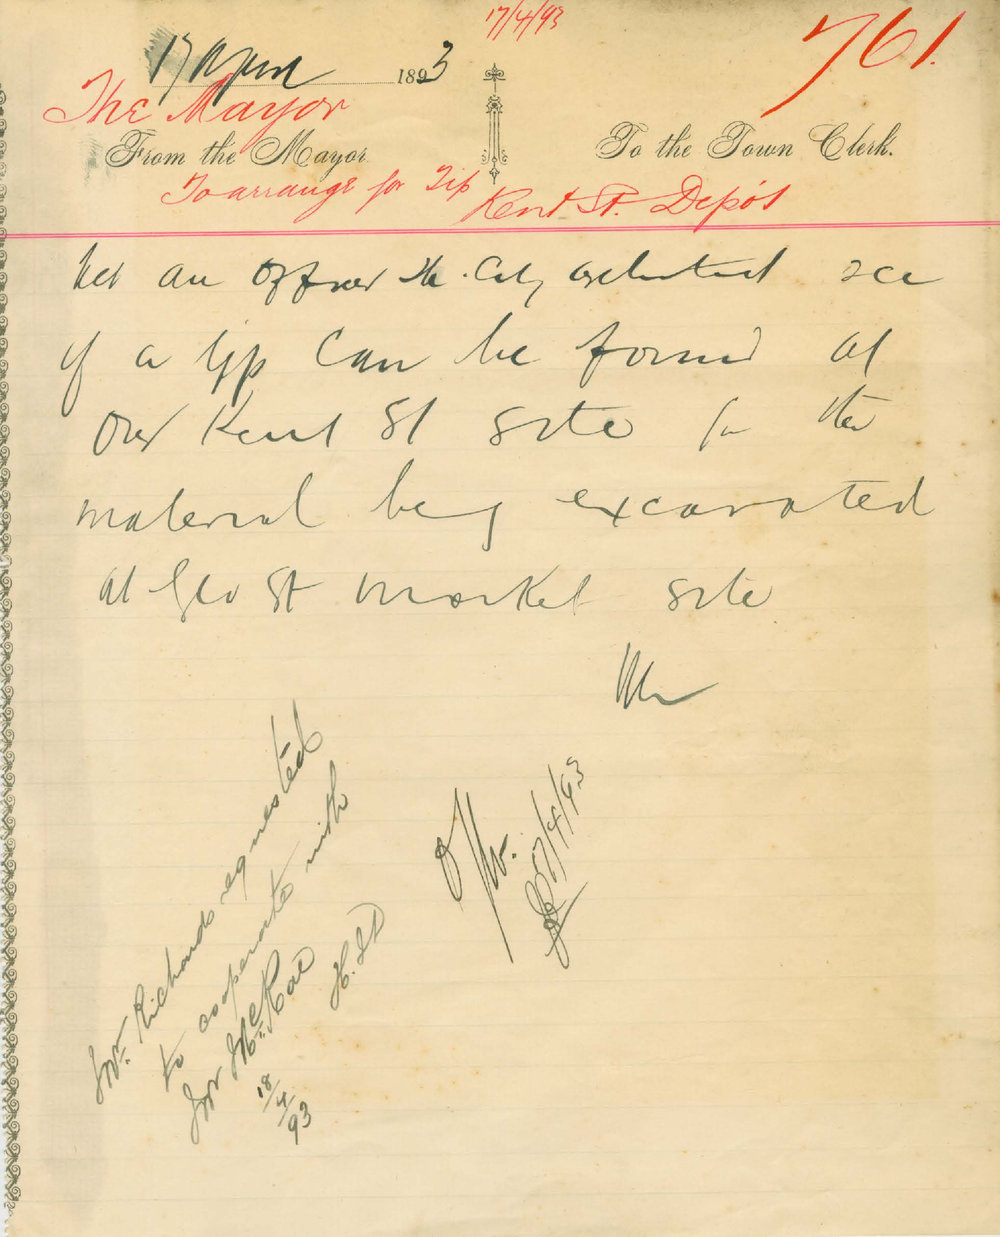 17/4/93
761.
17 April 1893
The Mayor
From the Mayor
To the Town Clerk.
To arrange for Tip Kent St. Depôt
Let an Officer the City see
if a tip can be formed at
Our Kent St site for the
material being excavated
at Geo St market site
17/4/93
Mr. Richards requested
to cooperate with
Mr McRae
18/4/93